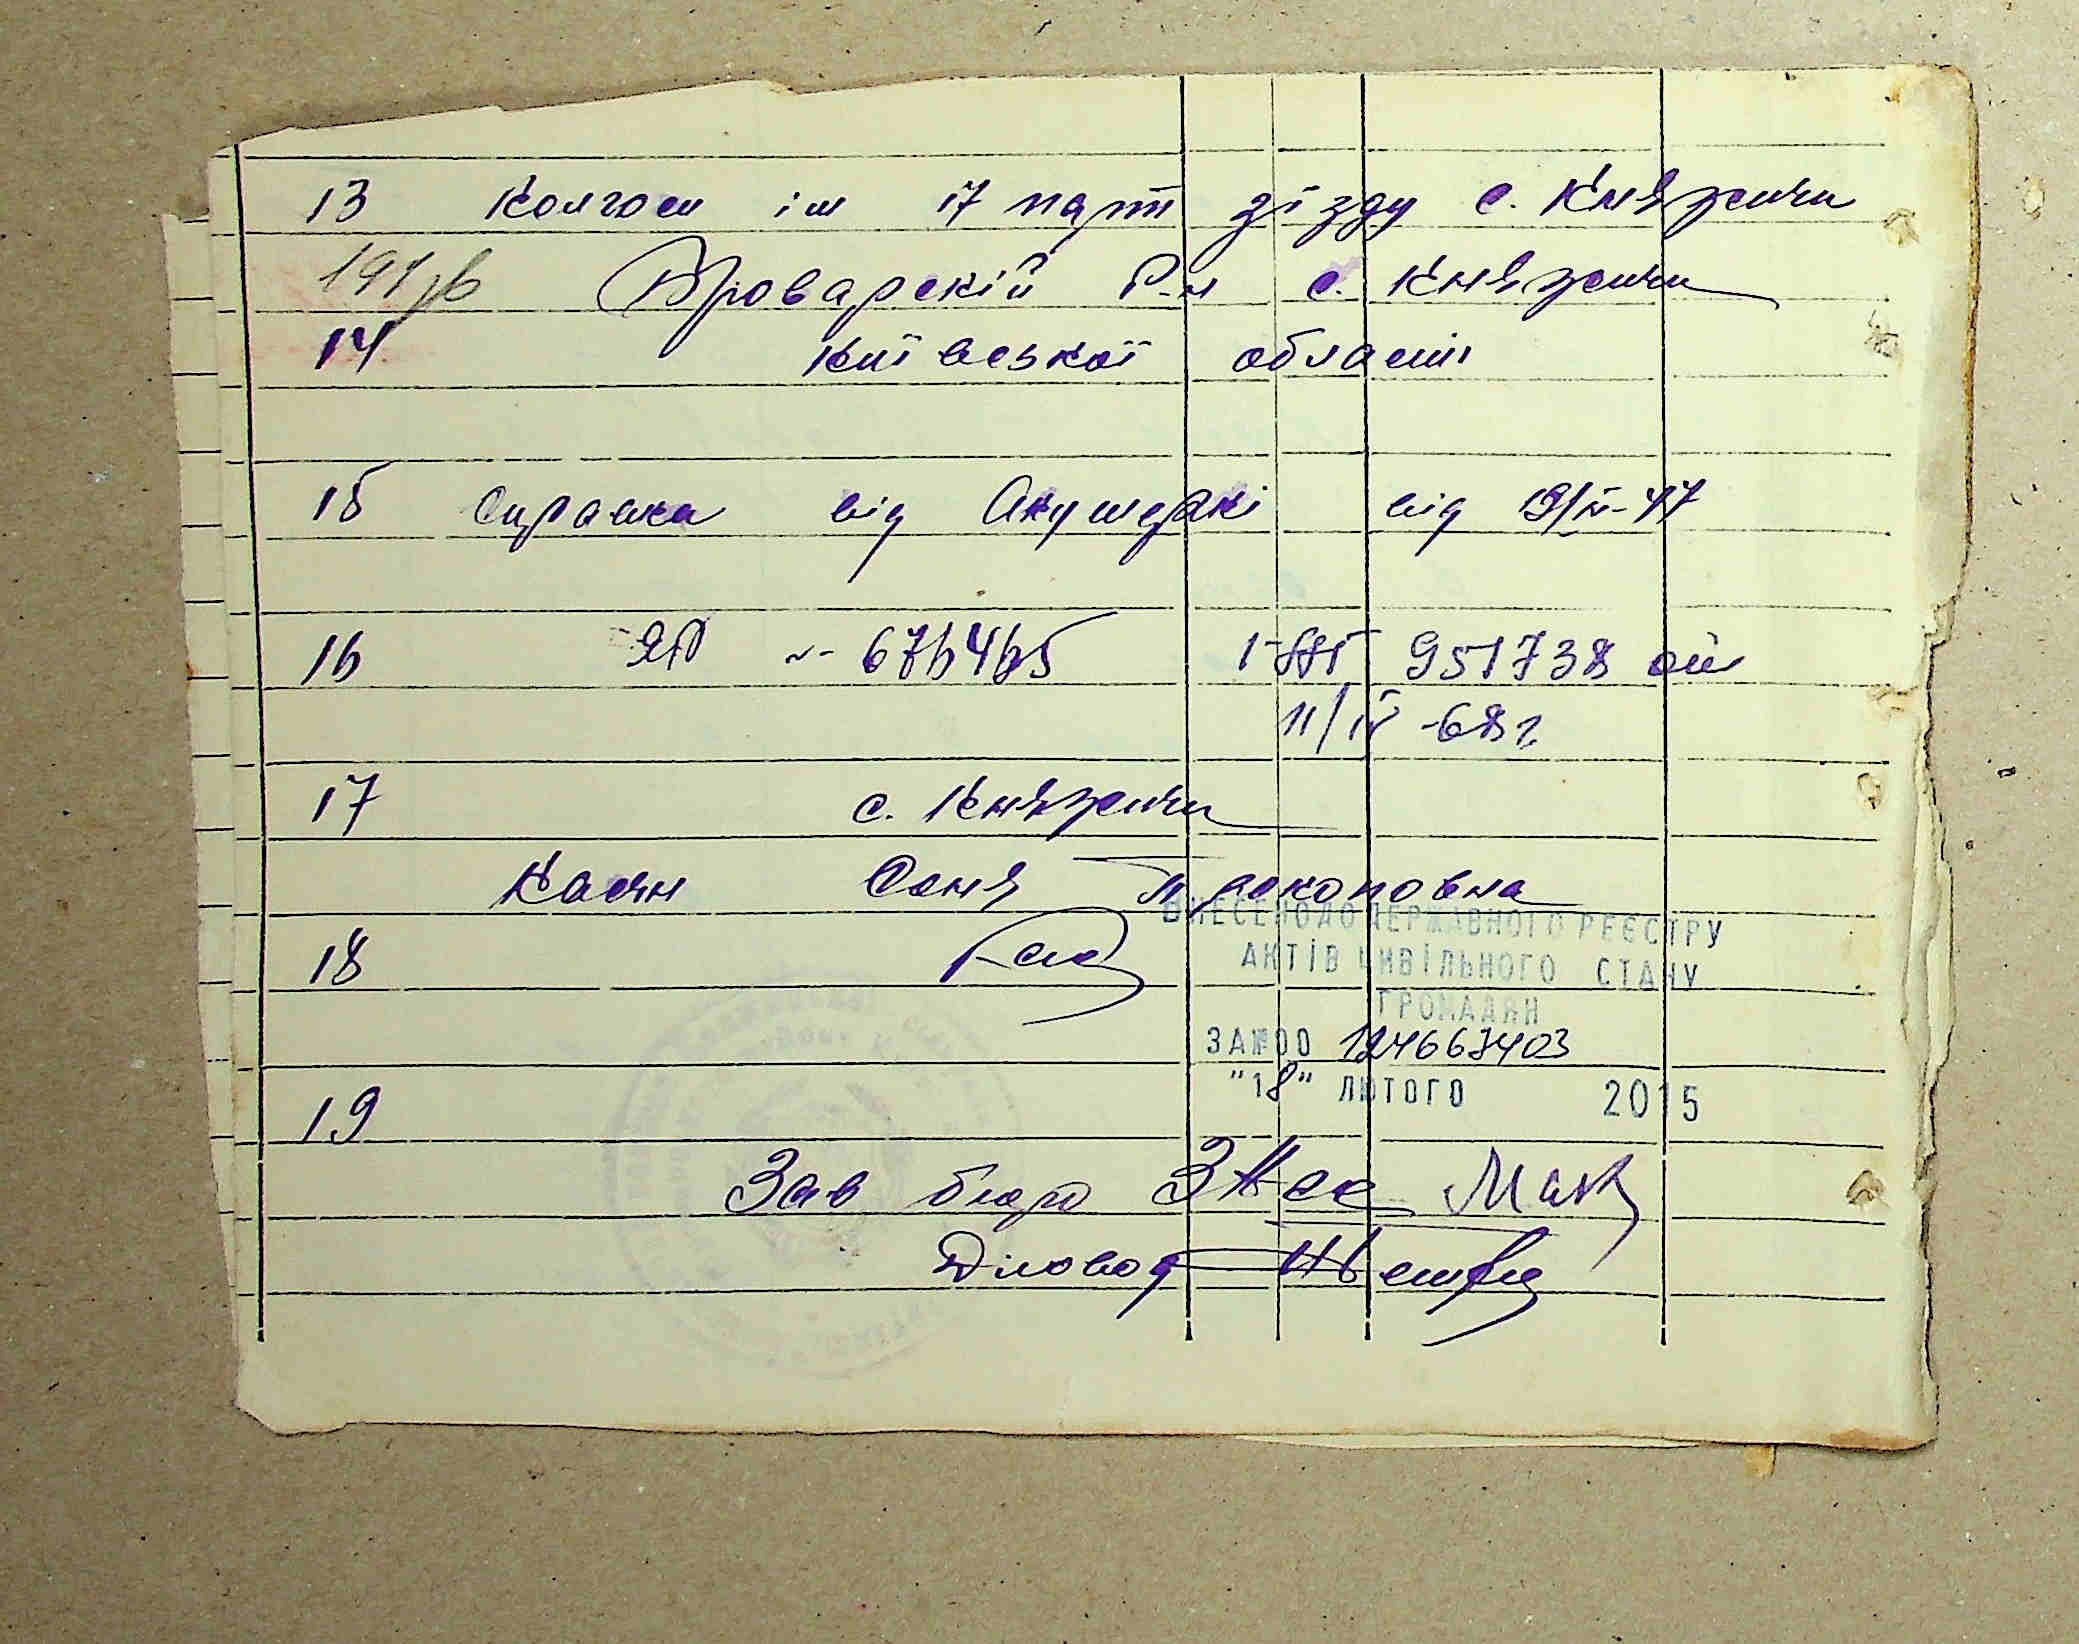 13 Колгосп ім 17 парт зїзду с. Княжичи
Броварскій Р-н с. Княжичи
14 Київської області
15 Справка від Акушеркі від 19/ІІ-47
16 ЯП № 676465 951738 от
11/IV -68г
17 с. Княжичи
Касян Соня Прокоповна
18
ВНЕСЕНО ДО ДЕРЖАВНОГО РЕЄСТРУ
АКТІВ ЦИВІЛЬНОГО СТАНУ
ГРОМАДЯН
ЗА №00 124667403
"18" ЛЮТОГО 2015
19
Зав бюро
Діловод